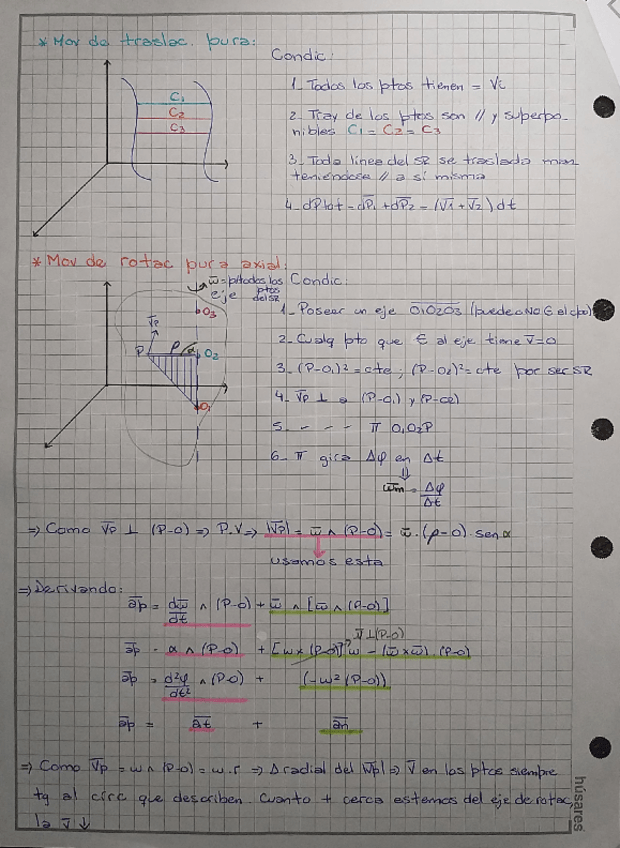 * Mov de traslac. pura:
Condic:
1_ Todos los ptos tienen = Vi
2_ Tray de los ptos son // y superpo-
nibles C1 = C2 = C3
3_ Toda linea del SR se traslada man
teniéndose // a sí misma
4_ dPtot = dP1 + dP2 = (V1 + V2) dt
C1
C2
C3
* Mov de rotac pura axial:
ω = p/todos los
ptos
del SR
eje
O3
Vp
P
ρ
α
O2
O1
Condic:
1_ Poseer un eje O1O2O3 (puede o NO ∈ al cpo)
2_ Cualq pto que ∈ al eje tiene V=0
3_ (P-O1)² = cte ; (P-O2)² = cte por ser SR
4_ Vp ⊥ a (P-O1) y (P-O2)
5_ - - - π O1O2P
6_ π gira Δφ en Δt
⇓
ωm = Δφ/Δt
⇒ Como Vp ⊥ (P-O) ⇒ P.V ⇒ |Vp| = ω ∧ (P-O) = ω . (P-O) . sen α
usamos esta
⇒ Derivando:
ap = dω/dt ∧ (P-O) + ω ∧ [ω ∧ (P-O)]
V⊥(P-O)
ap = α ∧ (P-O) + [ω × (P-O)] ω - (ω × ω) . (P-O)
ap = d²φ/dt² ∧ (P-O) + (-ω² (P-O))
ap = at + an
⇒ Como Vp = ω ∧ (P-O) = ω . r ⇒ Δ radial del |Vp| ⇒ V en los ptos siempre
tg al circ que describen. Cuanto + cerca estemos del eje de rotac,
la V ↓
húsares